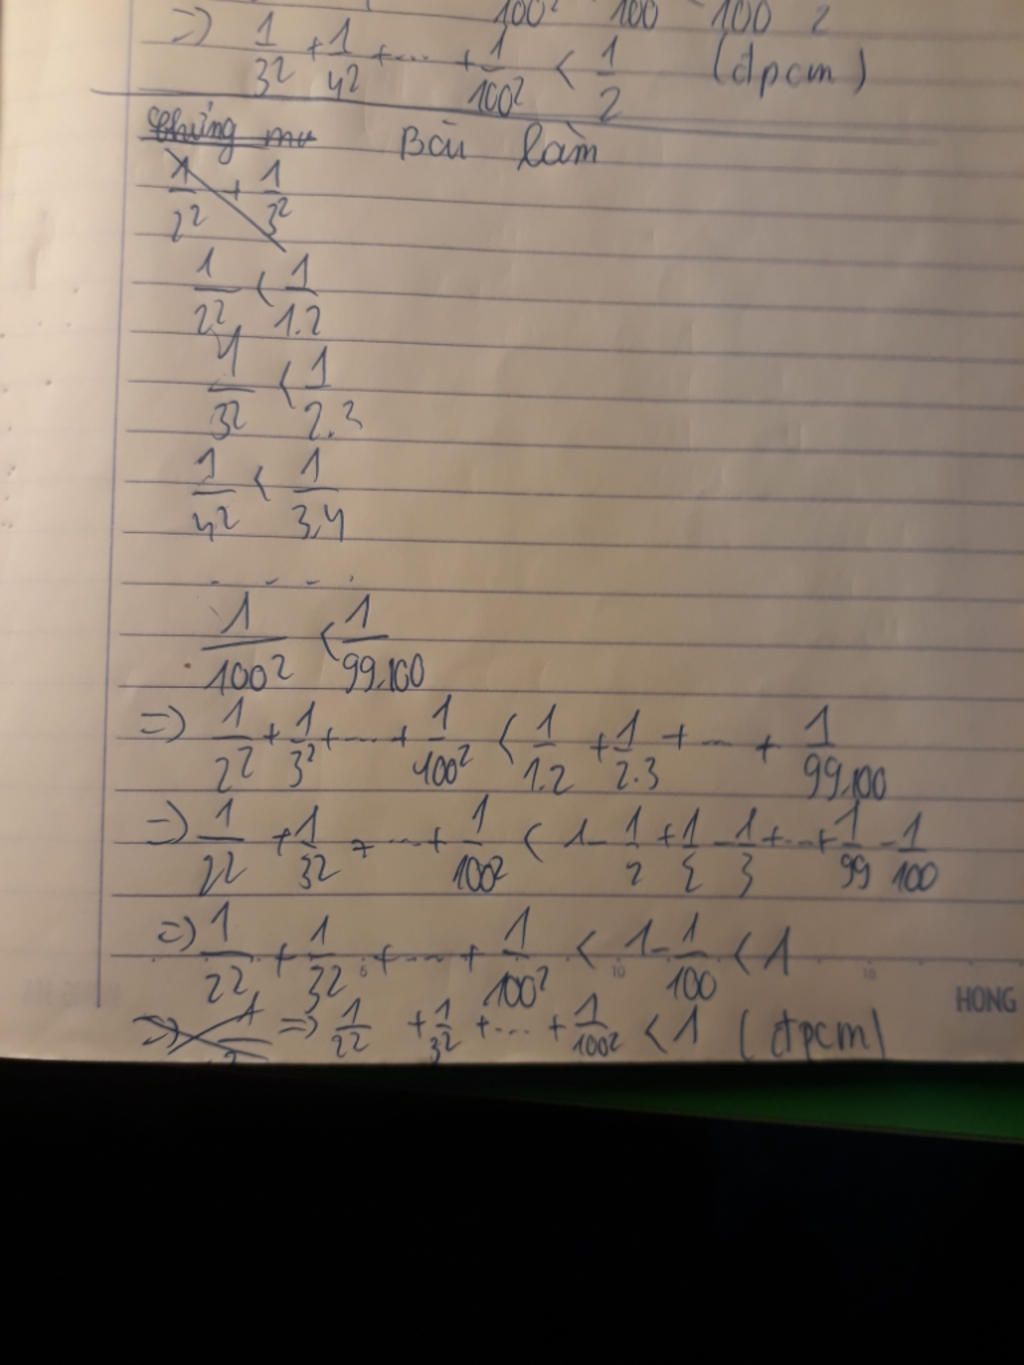 100² 100 100 2
=> 1/3² + 1/4² + ... + 1/100² < 1/2 (đpcm)
Bài làm
1/2² + 1/3²
1/2² < 1/1.2
1/3² < 1/2.3
1/4² < 1/3.4
....
1/100² < 1/99.100
=> 1/2² + 1/3² + ... + 1/100² < 1/1.2 + 1/2.3 + ... + 1/99.100
=> 1/2² + 1/3² + ... + 1/100² < 1 - 1/2 + 1/2 - 1/3 + ... + 1/99 - 1/100
=> 1/2² + 1/3² + ... + 1/100² < 1 - 1/100 < 1
=> 1/2² + 1/3² + ... + 1/100² < 1 (đpcm)
HONG